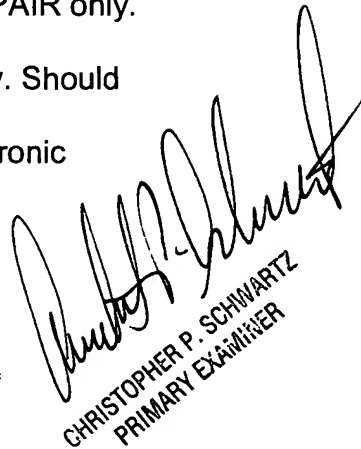 PAIR only.
. Should
ronic
CHRISTOPHER P. SCHWARTZ
PRIMARY EXAMINER